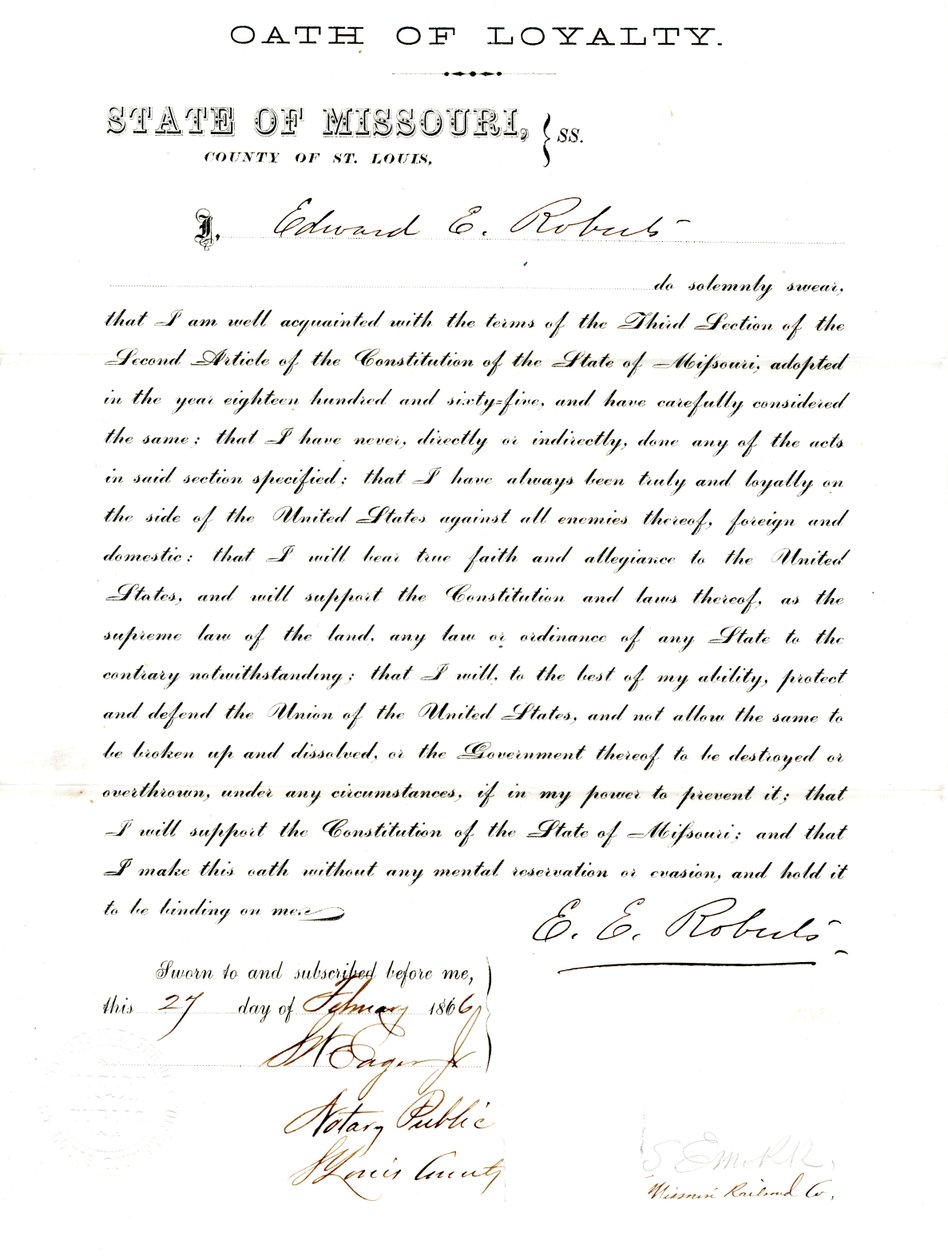 OATH OF LOYALTY.
STATE OF MISSOURI, } SS.
COUNTY OF ST. LOUIS,
I, Edward E. Roberts
do solemnly swear,
that I am well acquainted with the terms of the Third Section of the
Second Article of the Constitution of the State of Miſsouri, adopted
in the year eighteen hundred and sixty=five, and have carefully considered
the same; that I have never, directly or indirectly, done any of the acts
in said section specified; that I have always been truly and loyally on
the side of the United States against all enemies thereof, foreign and
domestic: that I will bear true faith and allegiance to the United
States, and will support the Constitution and laws thereof, as the
supreme law of the land, any law or ordinance of any State to the
contrary notwithstanding; that I will, to the best of my ability, protect
and defend the Union of the United States, and not allow the same to
be broken up and dissolved, or the Government thereof to be destroyed or
overthrown, under any circumstances, if in my power to prevent it; that
I will support the Constitution of the State of Miſsouri; and that
I make this oath without any mental reservation or evasion, and hold it
to be binding on me.
E. E. Roberts
Sworn to and subscribed before me,
this 27 day of February 1866
Eager Jr
Notary Public
St Louis County
Missouri Railroad Co.